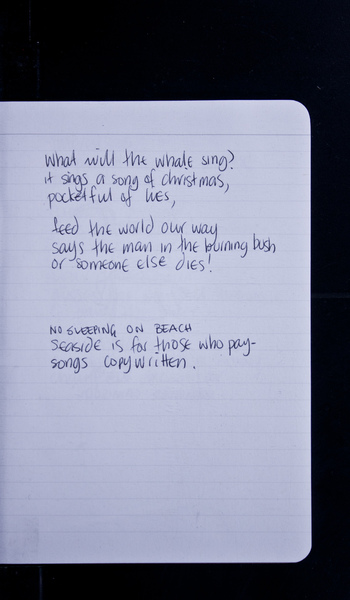 What will the whale sing?
it sings a song of christmas,
pocketful of lies,
feed the world our way
says the man in the burning bush
or someone else dies!
NO SLEEPING ON BEACH
SEASIDE is for those who pay-
songs copywritten.